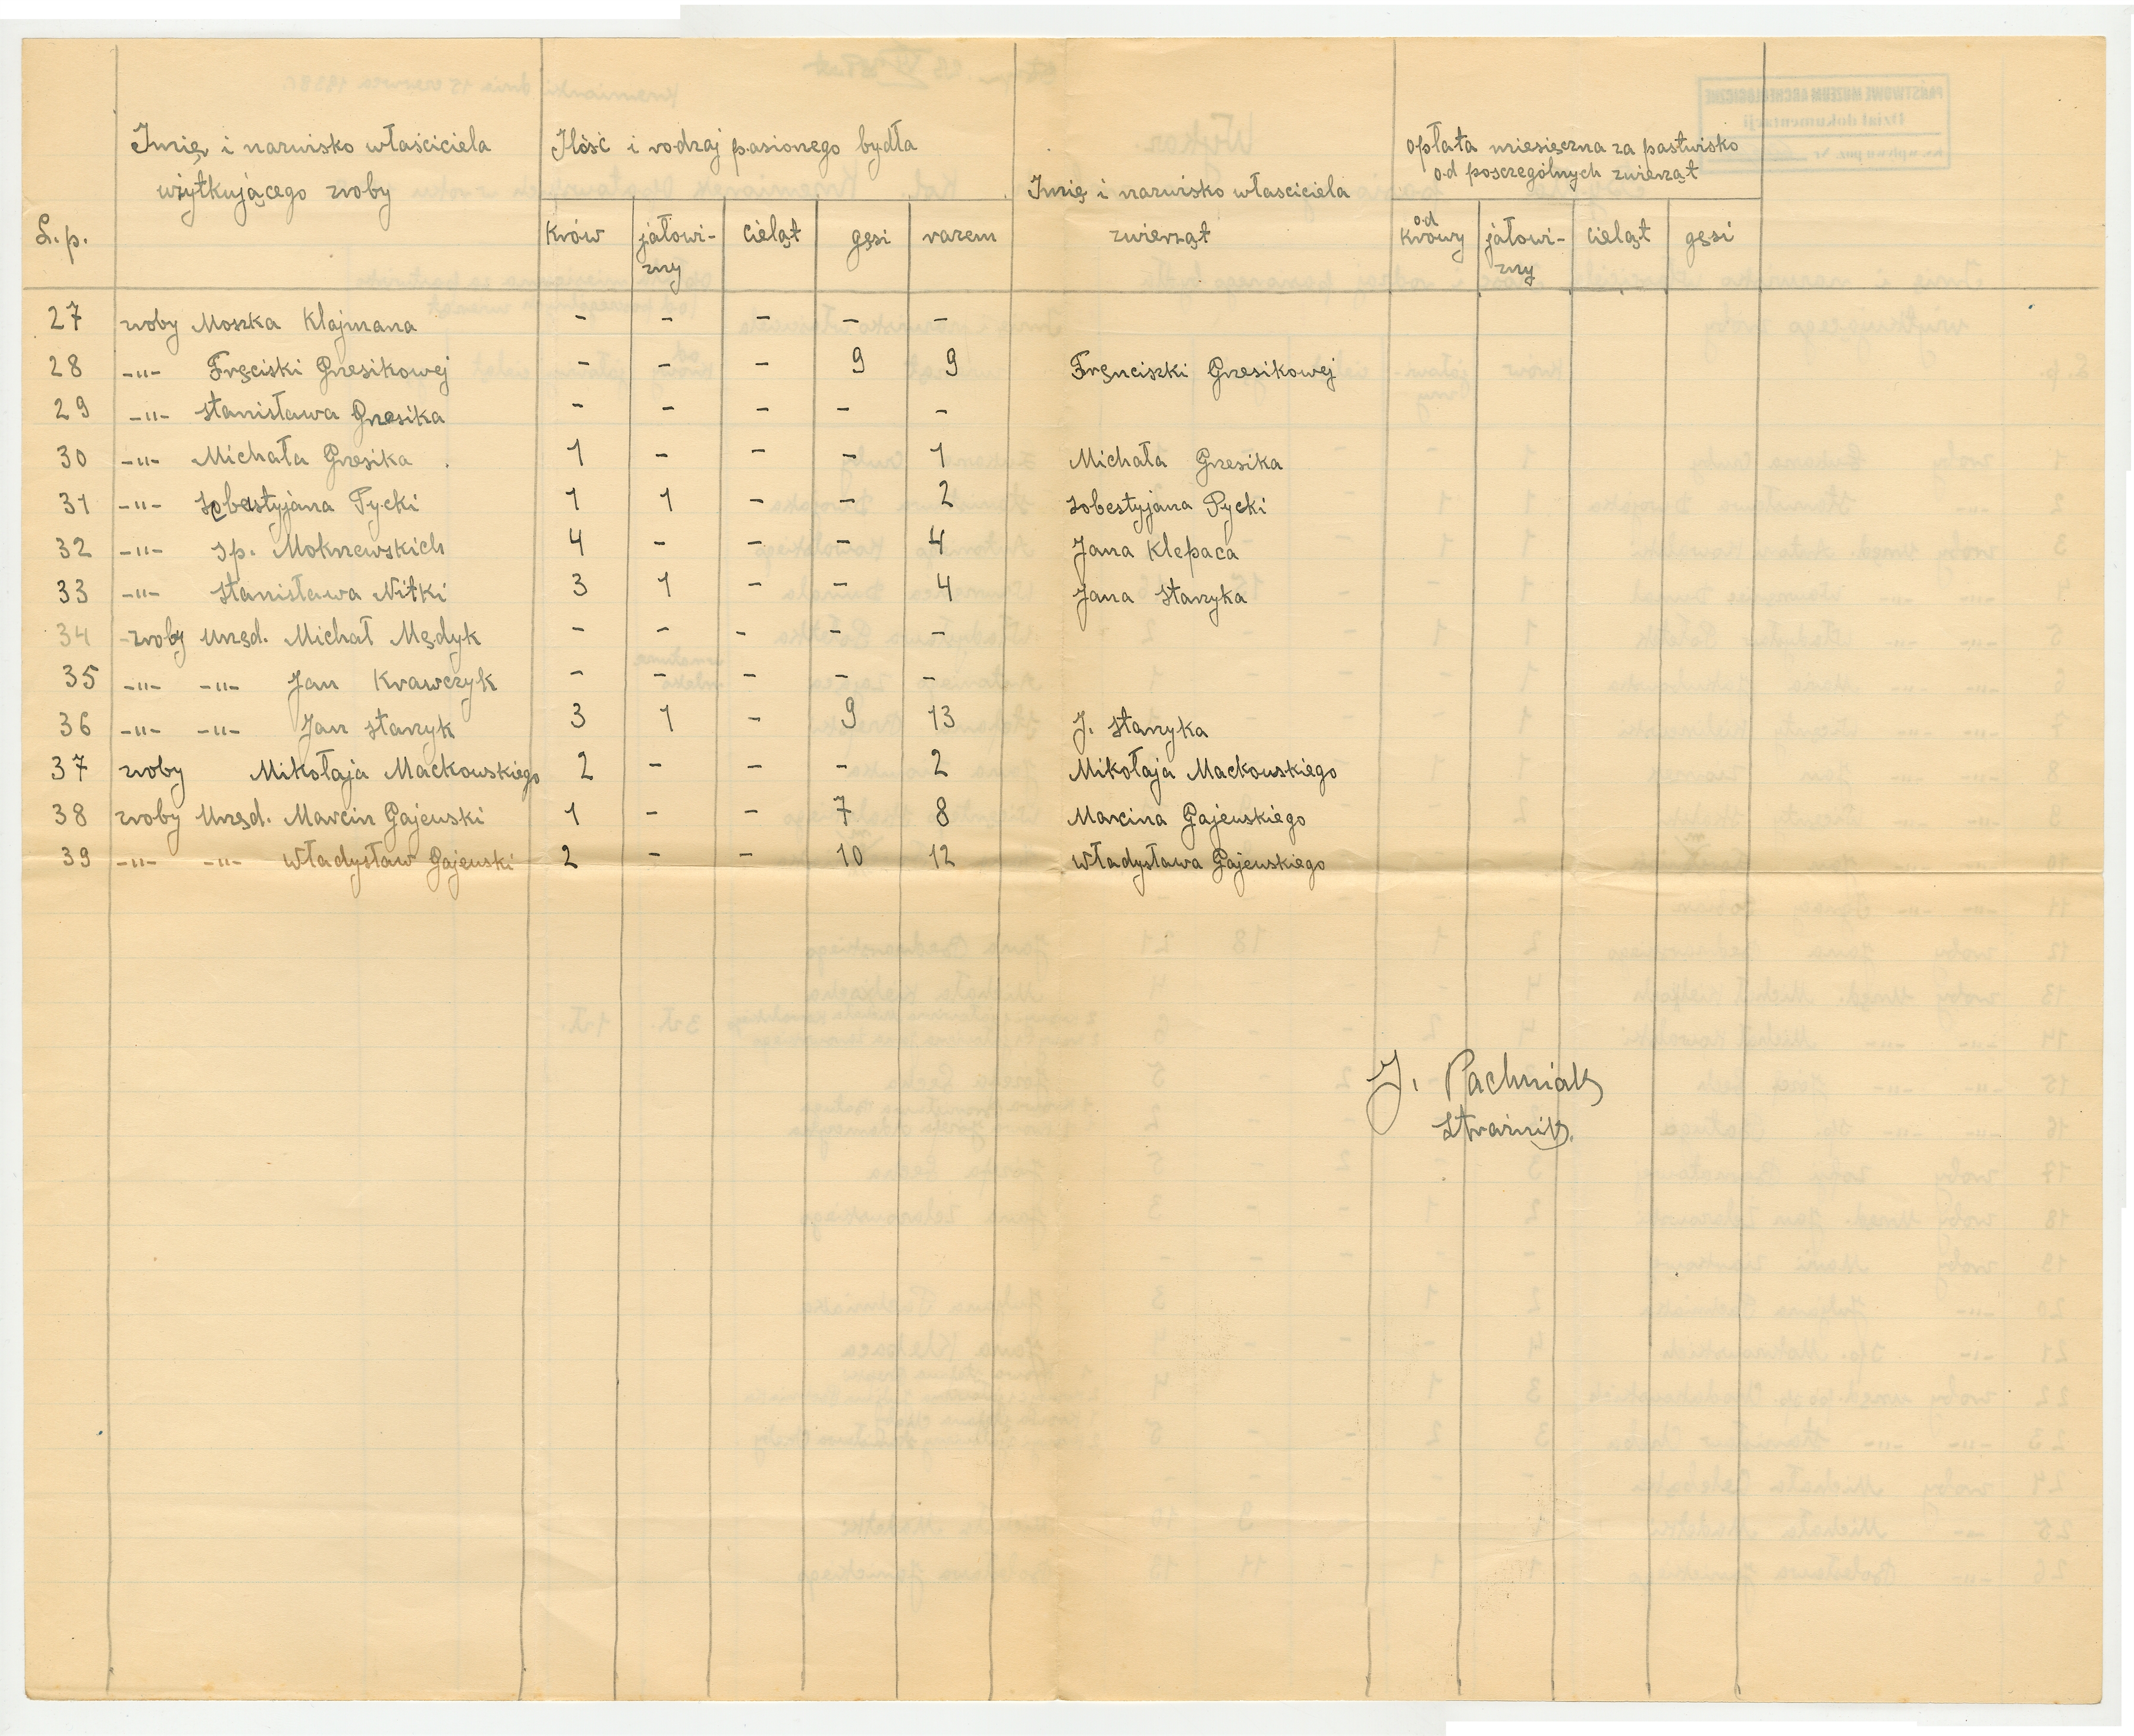 L.p.
Imię i nazwisko właściciela
użytkującego zroby
Ilość i rodzaj pasionego bydła
krów jałowi- cieląt gęsi razem
zny
Imię i nazwisko właściciela
zwierząt
opłata miesięczna za pastwisko
od posczególnych zwierząt
od
krowy jałowi- cieląt gęsi
zny
27 zroby Moszka Klajmana - - - - -
28 -"- Fręciski Grzesikowej - - - 9 9 Fręnciszki Grzesikowej
29 -"- Stanisława Grzesika - - - - -
30 -"- Michała Grzesika 1 - - - 1 Michała Grzesika
31 -"- Sobestyjana Pycki 1 1 - - 2 Sobestyjana Pycki
32 -"- Sp. Mokrzewskich 4 - - - 4 Jana Klepaca
33 -"- Stanisława Nitki 3 1 - - 4 Jana Starzyka
34 -zroby Urzęd. Michał Mędyk - - - - -
35 -"- -"- Jan Krawczyk - - - - -
36 -"- -"- Jan Starzyk 3 1 - 9 13 J. Starzyka
37 zroby Mikołaja Maćkowskiego 2 - - - 2 Mikołaja Maćkowskiego
38 zroby Urzęd. Marcin Gajewski 1 - - 7 8 Marcina Gajewskiego
39 -"- -"- Władysław Gajewski 2 - - 10 12 Władysława Gajewskiego
J. Pachniak
Strażnik.